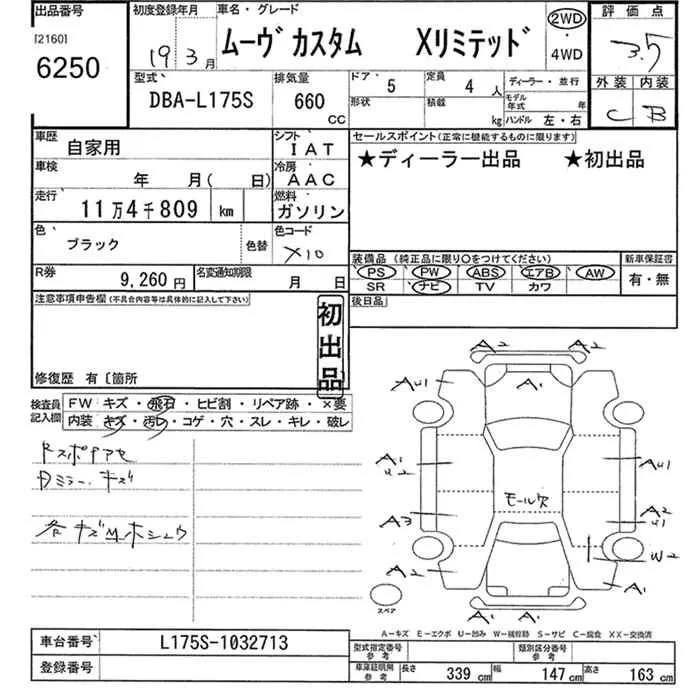 出品番号
[2160]
6250
初度登録年月
19 3月
車名・グレード
ムーヴ カスタム Xリミテッド
2WD
・
4WD
評価点
3.5
外装 内装
C B
型式
DBA-L175S
排気量
660
CC
ドア 5
定員 4 人
形状
積載 kg
ディーラー・並行
モデル年式 年
ハンドル 左・右
車歴
自家用
シフト
IAT
車検
年 月( 日)
冷房
AAC
走行
11万4千809 km
燃料
ガソリン
色
ブラック
色替
色コード
X10
R券
9,260円
名変通知期限
月 日
セールスポイント(正常に機能するものに限ります)
★ディーラー出品 ★初出品
装備品 (純正品に限り○をつけてください)
PS PW ABS エアB AW
SR ナビ TV カワ
新車保証書
有・無
後日品
注意事項申告欄(不具合内容等は具体的に記入して下さい)
初出品
修復歴 有〔箇所
検査員記入欄
FW キズ・飛石・ヒビ割・リペア跡・×要
内装 キズ・汚レ・コゲ・穴・スレ・キレ・破レ
ミラー キズ
各キズ
A2 A2
AU1 A1
A1
U2
AU1
A3
A2
U1
モール欠
A2
W2
A1
A2 A2
スペア
A−キズ E−エクボ U−凹み W−補修跡 S−サビ C−腐食 XX−交換済
車台番号
L175S-1032713
登録番号
型式指定番号
参考
類別区分番号
参考
車庫証明用
参考
長さ 339 cm
幅 147 cm
高さ 163 cm